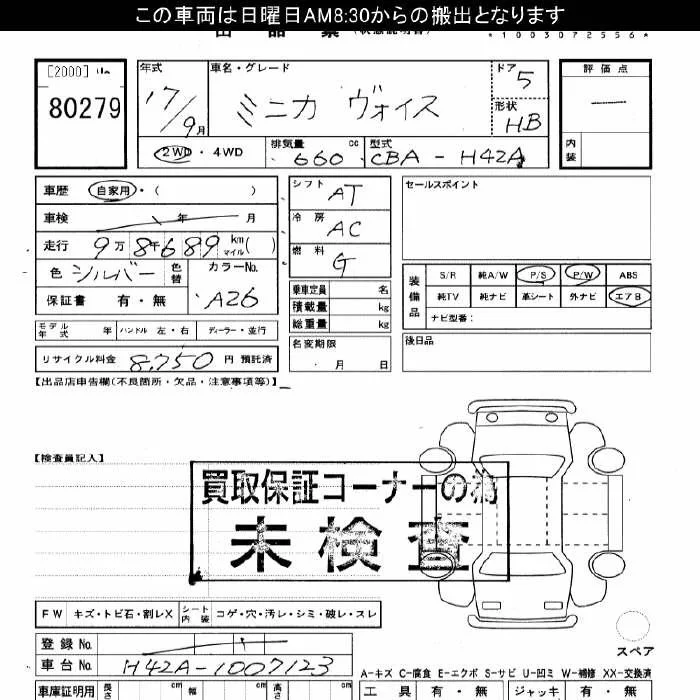 この車両は日曜日AM8:30からの搬出となります
出品票 (状態説明書)
*1003072556*
[2000]
80279
年式 17/9月
車名・グレード ミニカ ヴォイス
ドア 5
形状 HB
評価点 —
内装
2WD・4WD
排気量 660 cc
型式 CBA-H42A
車歴 自家用・( )
車検 年 月
走行 9万8千689 km マイル( )
色 シルバー 色替
カラーNo. A26
保証書 有・無
モデル年式 年 ハンドル 左・右 ディーラー・並行
リサイクル料金 8,750 円 預託済
シフト AT
冷房 AC
燃料 G
乗車定員 名
積載量 kg
総重量 kg
名変期限 ・月 日
セールスポイント
装備品
S/R 純A/W P/S P/W ABS
純TV 純ナビ 革シート 外ナビ エアB
ナビ型番:
後日品
【出品店申告欄(不良箇所・欠品・注意事項等)】
【検査員記入】
買取保証コーナーの為
未検査
FW キズ・トビ石・割レX シート内装 コゲ・穴・汚レ・シミ・破レ・スレ
登録No.
車台No. H42A-1007123
スペア
A-キズ C-腐食 E-エクボ S-サビ U-凹ミ W-補修 XX-交換済
車庫証明用 長さ cm 幅 cm 高さ cm
工具 有・無 ジャッキ 有・無